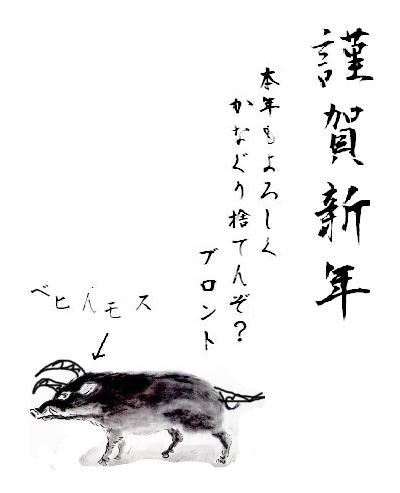 謹賀新年
本年もよろしく
かなぐり捨てんぞ？
ブロント
ベヒんモス